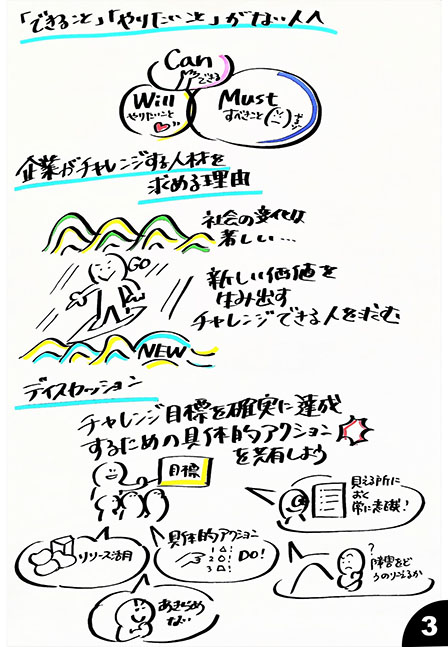 「できること」「やりたいこと」がない人へ
Can
できる
Will
やりたいこと
Must
すべきこと
企業がチャレンジする人材を
求める理由
社会の変化は
著しい…
GO
新しい価値を
生み出す
チャレンジできる人を求む
NEW
ディスカッション
チャレンジ目標を確実に達成
するための具体的アクション
を共有しよう
目標
見える所に
おく
常に意識!
リソース活用
具体的アクション
1
2
3
DO!
?
障害をど
うのりこえるか
あきらめ
ない
3